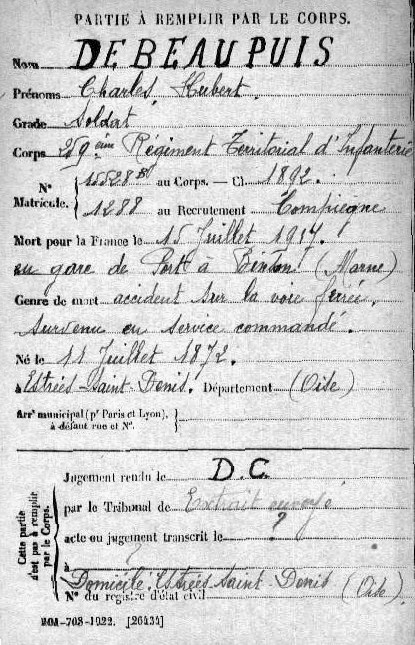 PARTIE À REMPLIR PAR LE CORPS.
Nom DEBEAUPUIS
Prénoms Charles, Hubert.
Grade Soldat
Corps 259ème Régiment Territorial d'Infanterie
N° Matricule. 15528 au Corps. — Cl 1892.
1288 au Recrutement Compiègne
Mort pour la France le 15 Juillet 1917.
en gare de Port à Binson (Marne)
Genre de mort accident sur la voie ferrée,
survenu en service commandé.
Né le 11 Juillet 1872.
à Estrées-Saint-Denis. Département (Oise)
Arrt municipal (pr Paris et Lyon),
à défaut rue et N°.
Cette partie n'est pas à remplir par le Corps.
Jugement rendu le D.C.
par le Tribunal de Extrait envoyé
acte ou jugement transcrit le ?
à
Domicile. Estrées Saint-Denis (Oise).
N° du registre d'état civil
601-708-1922. [26434]